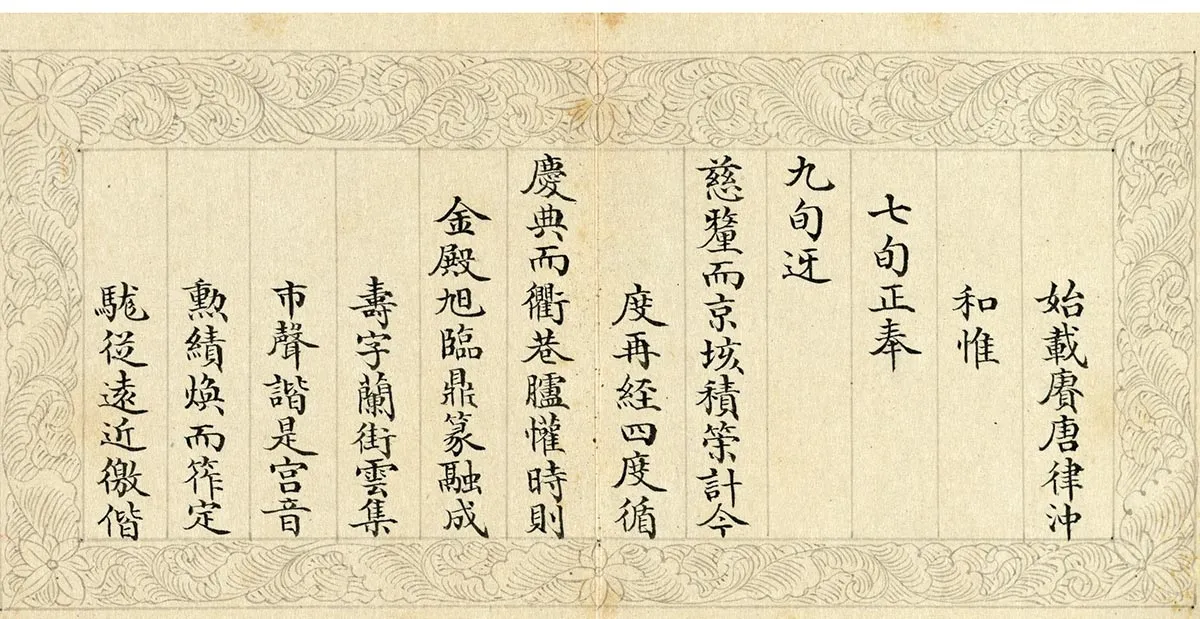 始載賡唐律沖
和惟
七旬正奉
九旬迓
慈釐而京垓積筞計今
度再経四度循
慶典而衢巷臚懽時則
金殿旭臨鼎篆融成
壽字蘭街雲集
市聲諧是宫音
勳績煥而筰定
駹從遠近徼偕